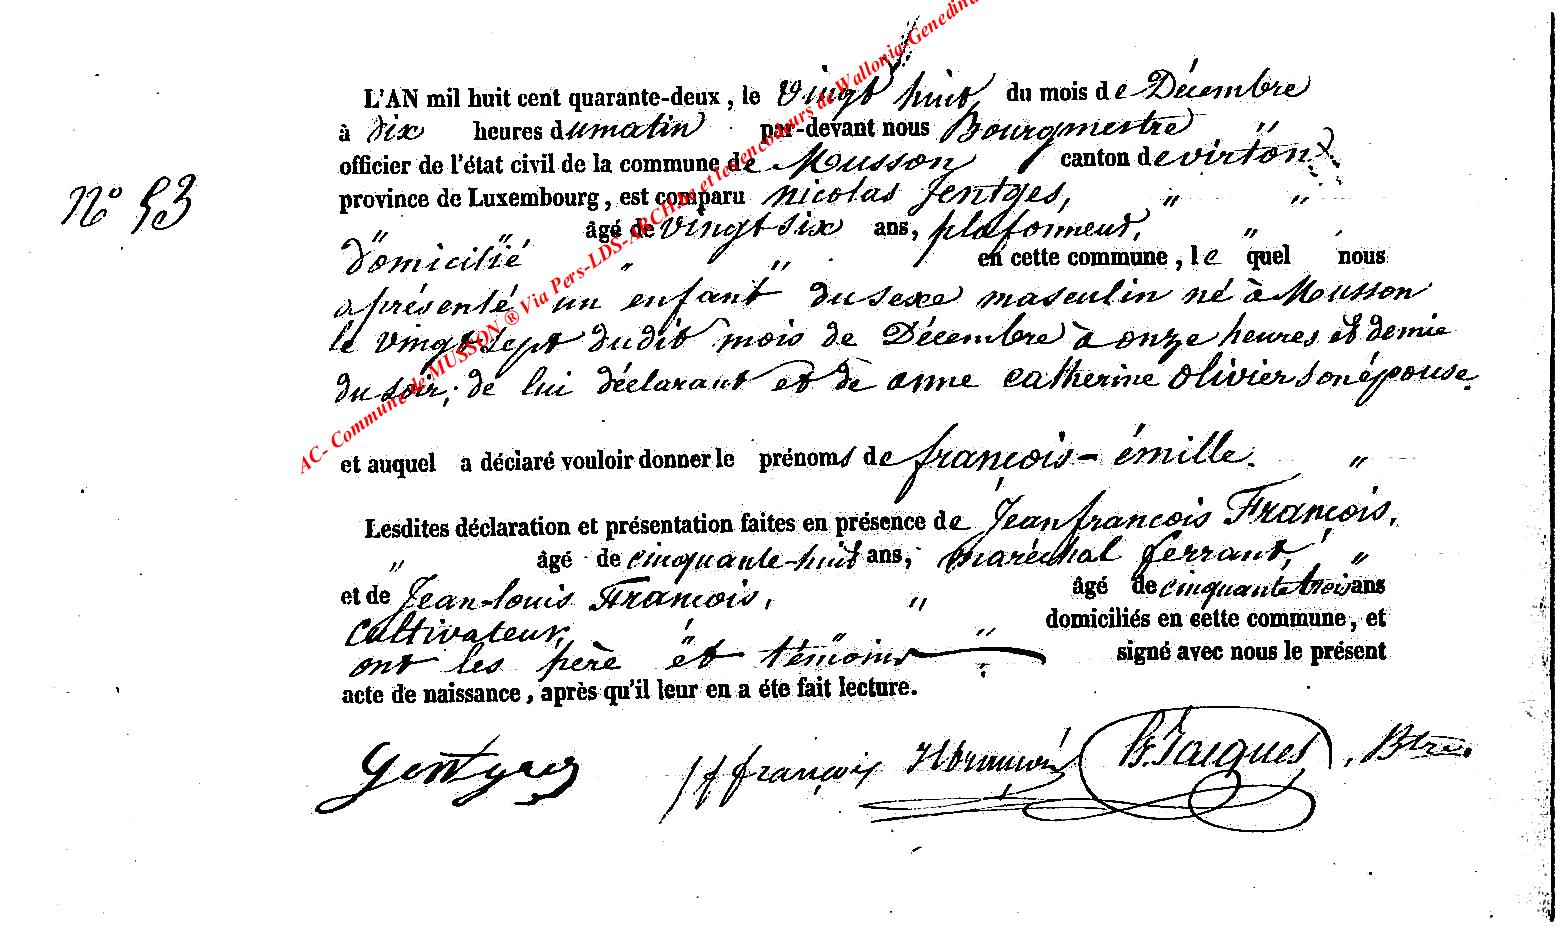 L'AN mil huit cent quarante-deux, le vingt huit du mois de Décembre
à dix heures du matin par-devant nous Bourgmestre "
officier de l'état civil de la commune de Musson canton de virton
N° 53
province de Luxembourg, est comparu nicolas Jentges, " "
" " âgé de vingt six ans, plafonneur, "
domicilié " " en cette commune, le quel nous
a présenté un enfant du sexe masculin né à Musson
le vingt sept dudit mois de Décembre à onze heures et demie
du soir, de lui déclarant et de anne catherine olivier son épouse.
et auquel a déclaré vouloir donner le prénoms de françois-émille. "
Lesdites déclaration et présentation faites en présence de Jean françois François,
" âgé de cinquante-huit ans, maréchal ferrant, "
et de Jean-louis François, " âgé de cinquante trois ans
Cultivateur, " " " domiciliés en cette commune, et
ont les père et témoins signé avec nous le présent
acte de naissance, après qu'il leur en a éte fait lecture.
Gentges Jf françois Jlfrançois Jacques, Btre.
AC- Commune de MUSSON ® Via Pers-LDS-ARCH.be et les encodeurs de Wallonia-Genedinu